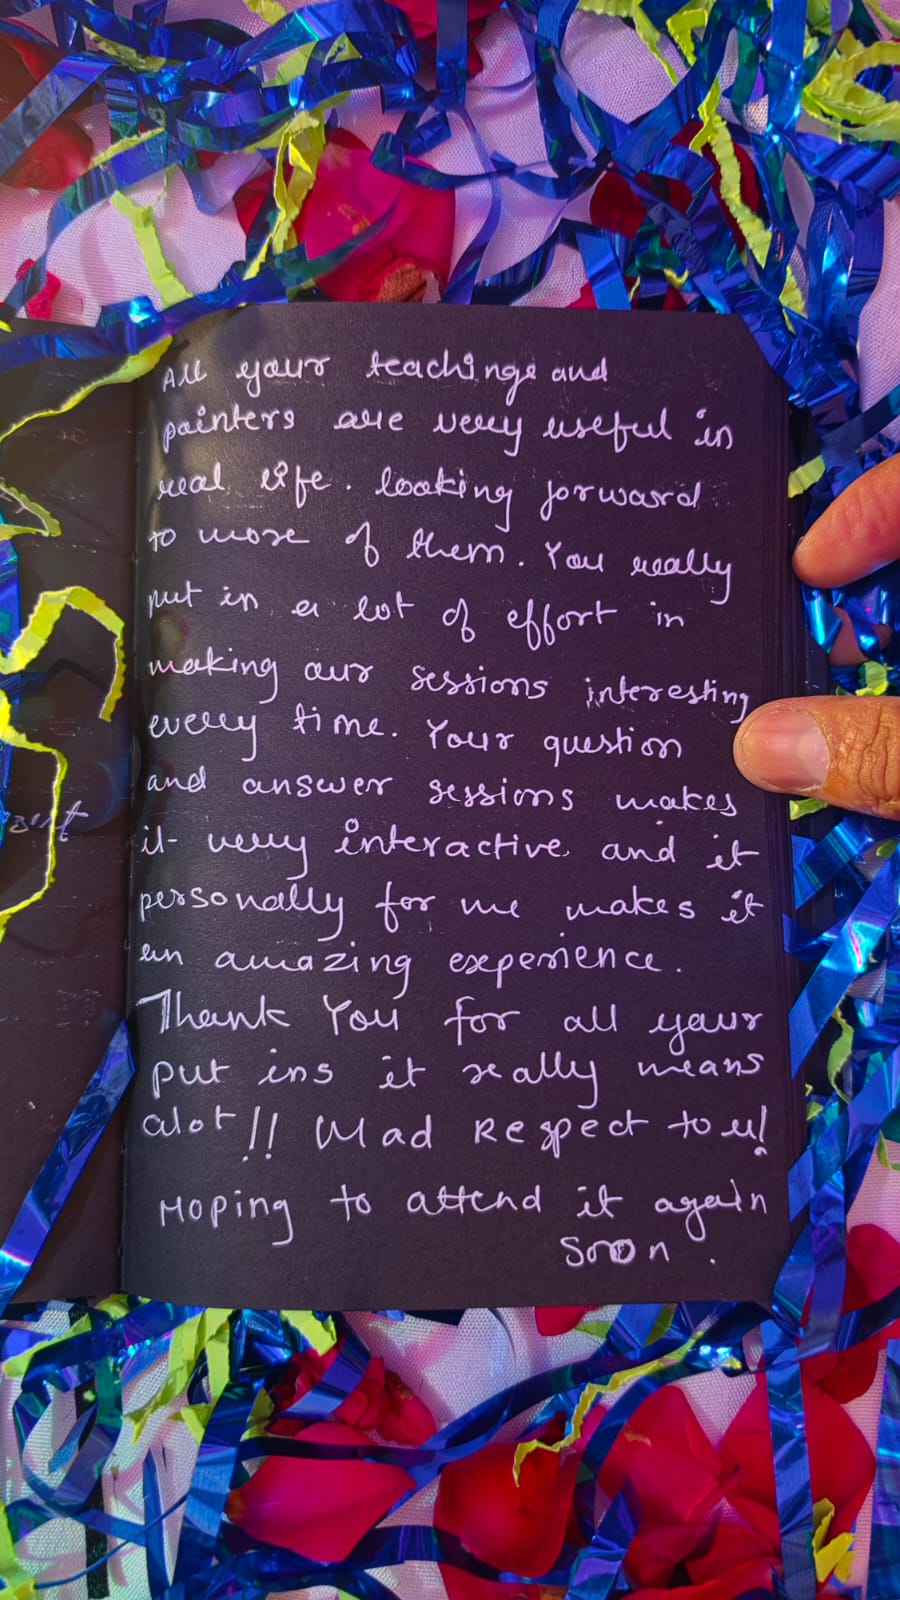 All your teachings and
painters are very useful in
real life. looking forward
to more of them. You really
put in a lot of effort in
making our sessions interesting
every time. Your question
and answer sessions makes
it very interactive and it
personally for me makes it
an amazing experience.
Thank You for all your
put ins it really means
alot!! Mad Respect to u!
Hoping to attend it again
Soon.